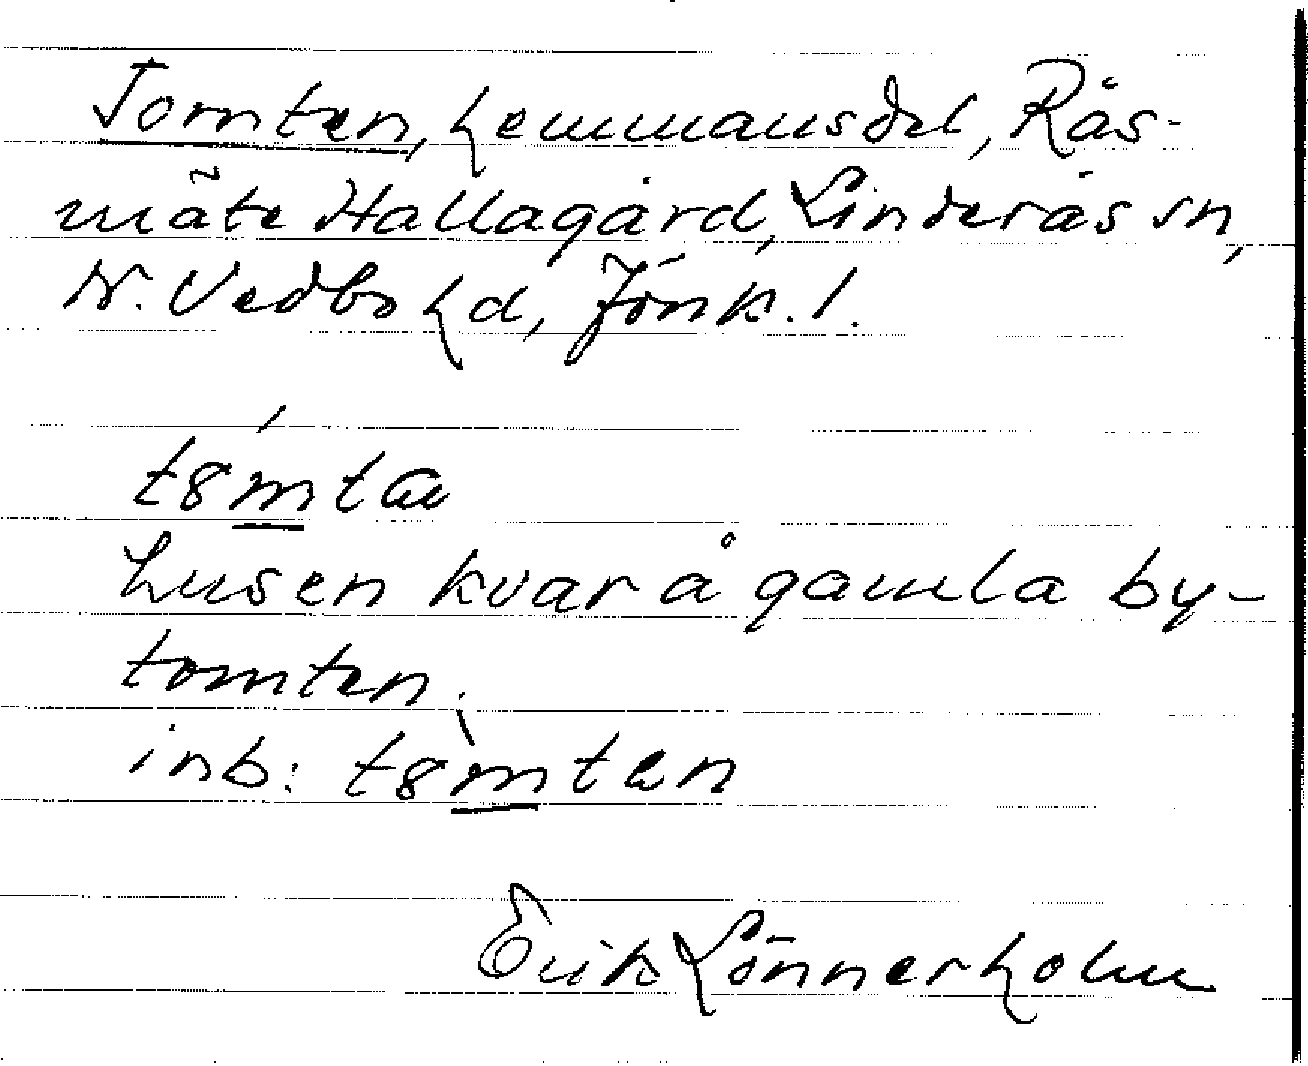 Tomten, hemmansdel, Rås-
mäte Hallagård, Linderås sn,
N. Vedbo hd, Jönk. l.
t8mta
husen kvar å gamla by-
tomten.
inb: t8mtæn
Erik Lönnerholm